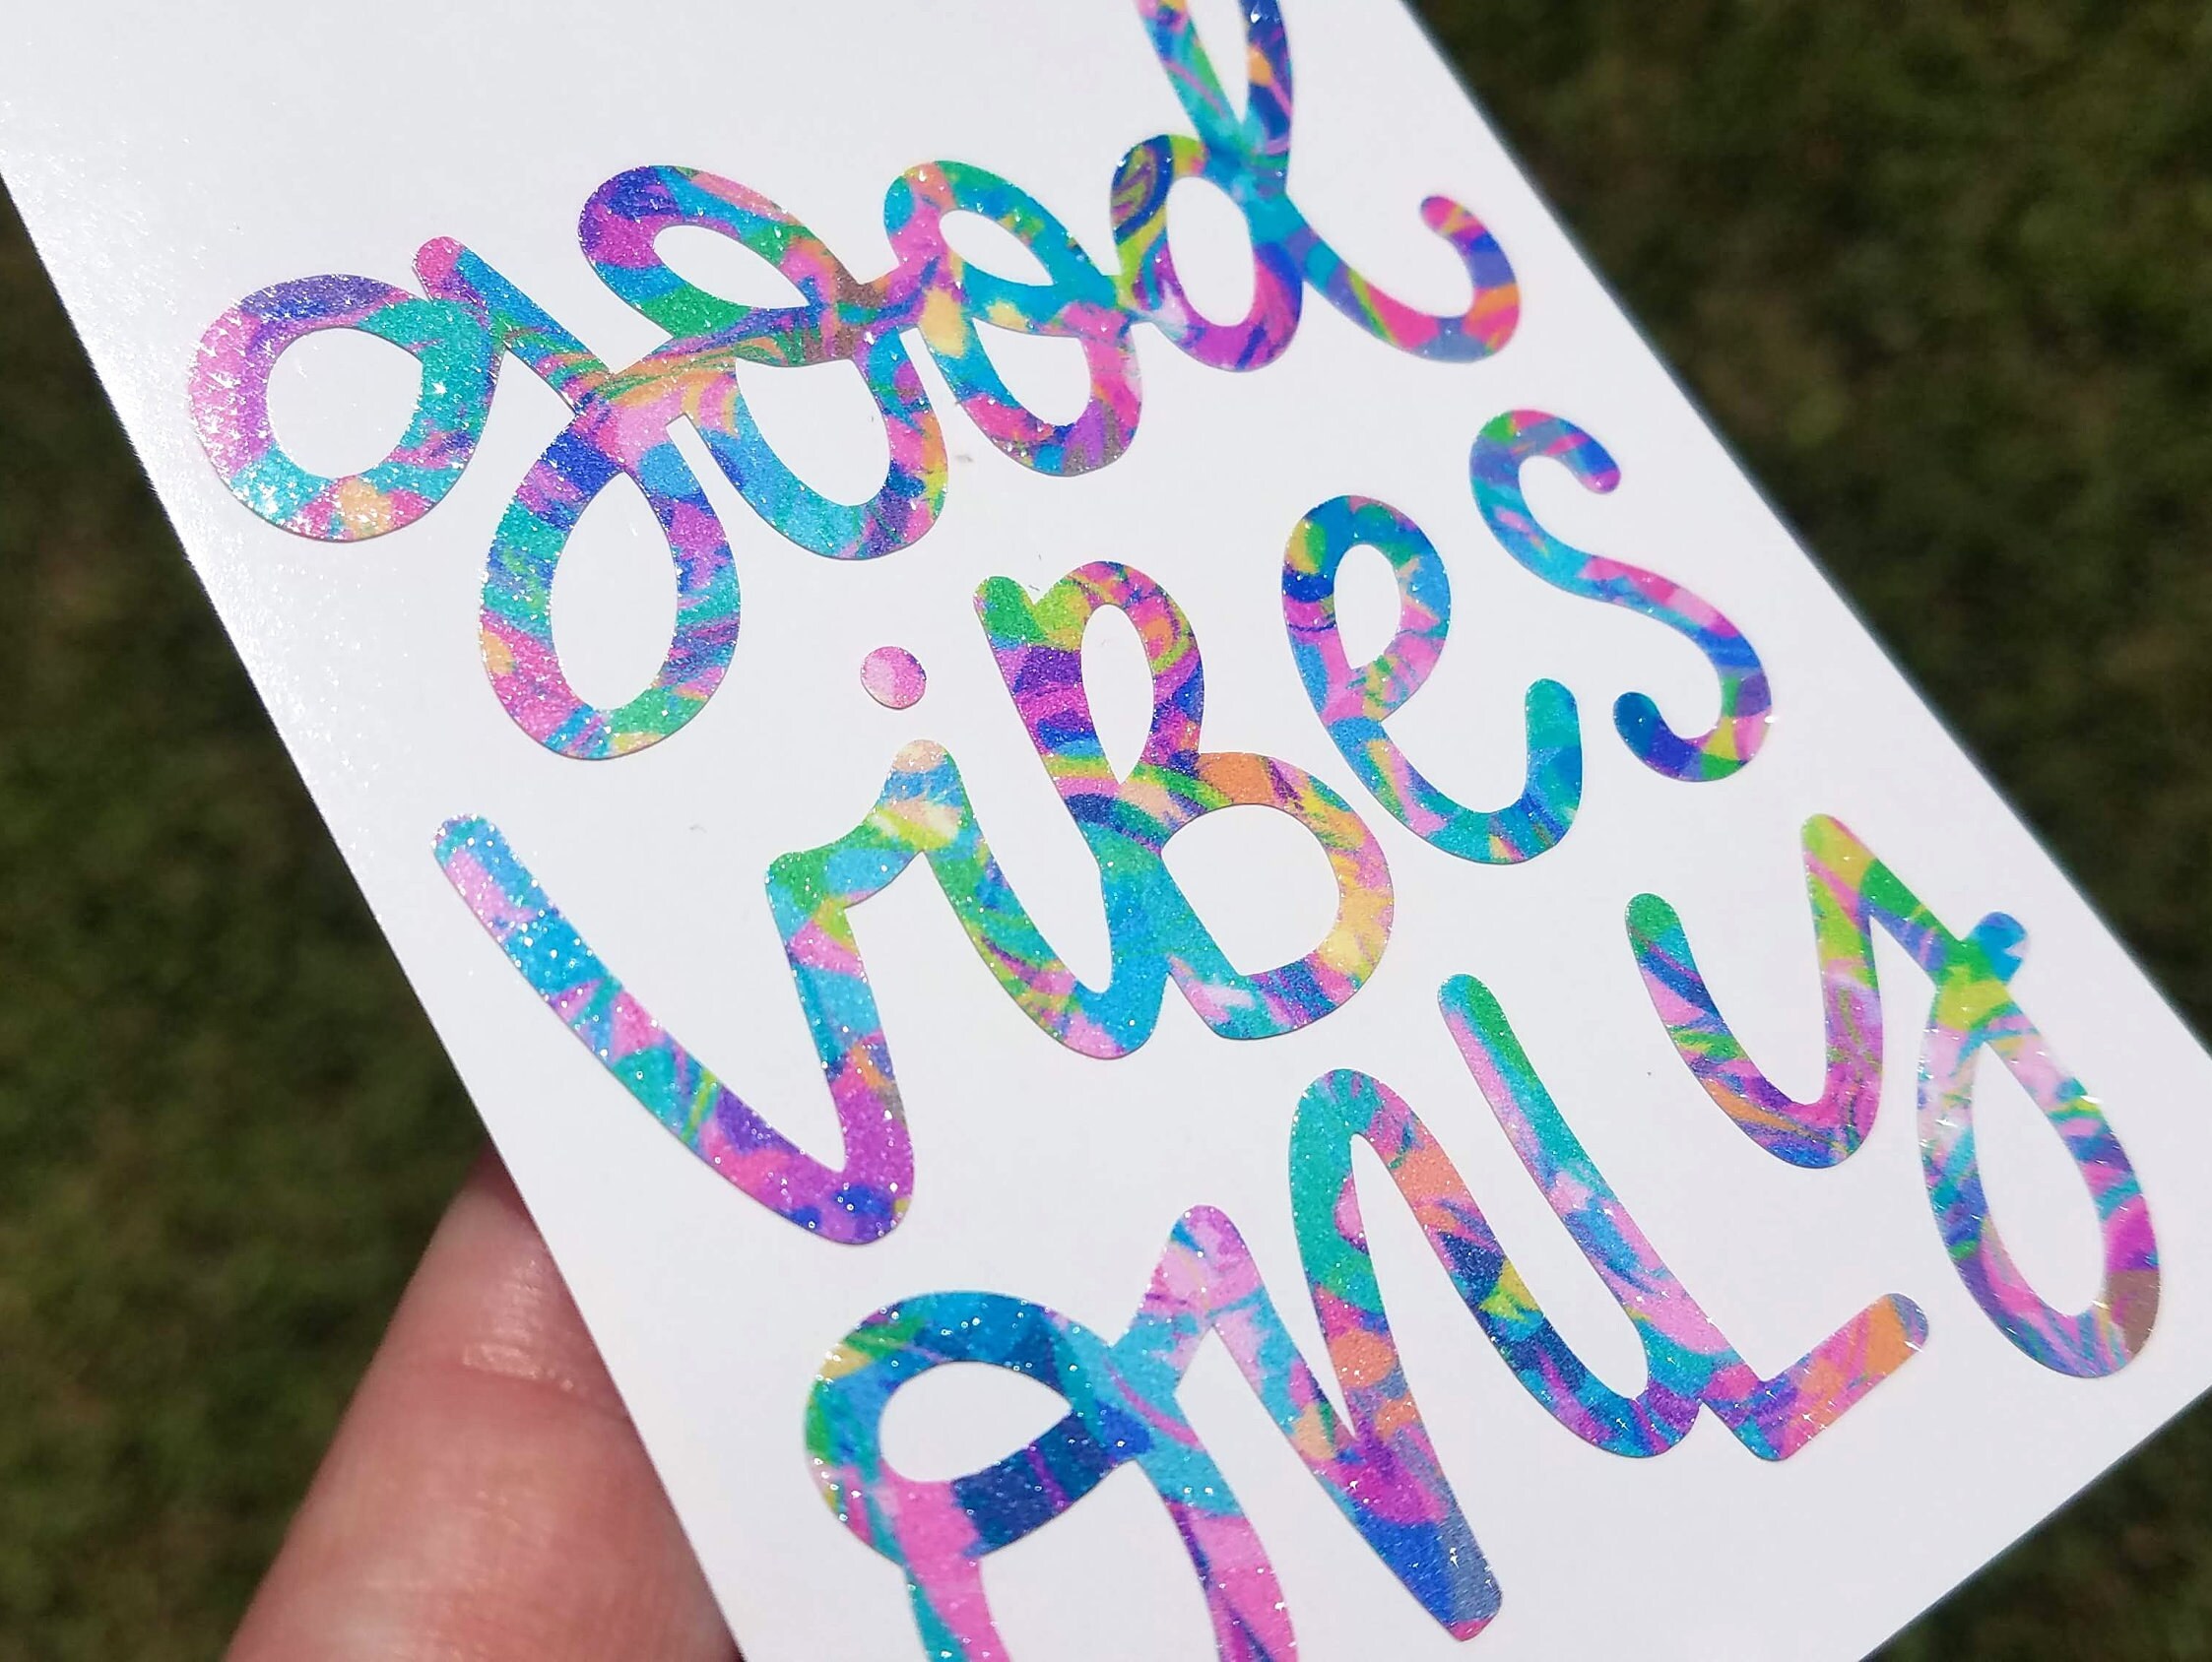 good
viBes
onLy